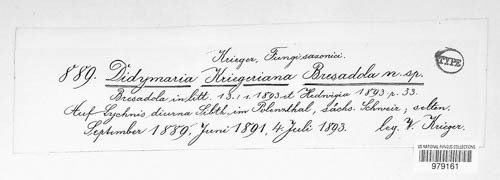 Krieger, Fungi saxonici.
TYPE
889. Didymaria Kriegeriana Bresadola n. sp.
Bresadola in litt. 15. 1. 1893 et Hedwigia 1893 p. 33.
Auf Lychnis diurna Sibth. im Polenzthal, sächs. Schweiz, selten.
September 1889, Juni 1891, 4. Juli 1893. leg. W. Krieger.
US NATIONAL FUNGUS COLLECTIONS
979161